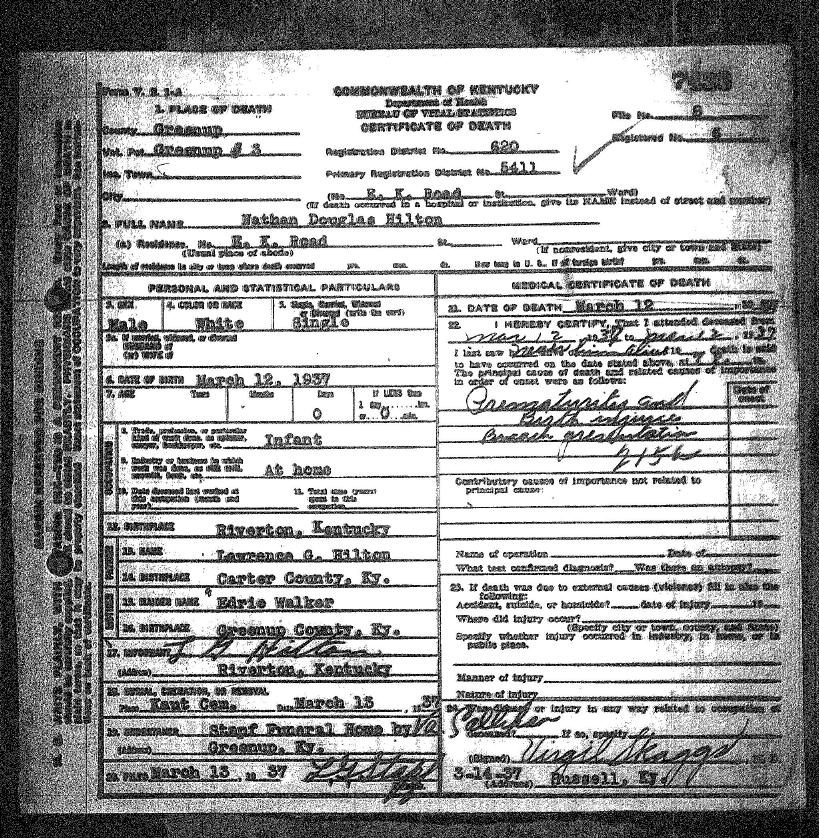 Form V. S. 1-A
COMMONWEALTH OF KENTUCKY
Department of Health
BUREAU OF VITAL STATISTICS
CERTIFICATE OF DEATH
1. PLACE OF DEATH
File No. 8
Registered No. 6
County Greenup
Vot. Pct. Greenup # 3
Registration District No. 620
Inc. Town
Primary Registration District No. 5411
City (No. E. K. Road St. Ward)
(If death occurred in a hospital or institution, give its NAME instead of street and number)
2. FULL NAME Nathan Douglas Hilton
(a) Residence. No. E. K. Road St. Ward
(Usual place of abode) (If nonresident, give city or town and State)
Length of residence in city or town where death occurred yrs. mos. ds. How long in U. S., if of foreign birth? yrs. mos. ds.
PERSONAL AND STATISTICAL PARTICULARS
3. SEX 4. COLOR OR RACE 5. Single, Married, Widowed or Divorced (write the word)
Male White Single
5a. If married, widowed, or divorced
HUSBAND of
(or) WIFE of
6. DATE OF BIRTH March 12, 1937
7. AGE Years Months Days If LESS than
1 day hrs.
0 or 0 min.
8. Trade, profession, or particular kind of work done, as spinner, sawyer, bookkeeper, etc. Infant
9. Industry or business in which work was done, as silk mill, sawmill, bank, etc. At home
10. Date deceased last worked at this occupation (month and year)
11. Total time (years) spent in this occupation
12. BIRTHPLACE Riverton, Kentucky
13. NAME Lawrence G. Hilton
14. BIRTHPLACE Carter County, Ky.
15. MAIDEN NAME Edrie Walker
16. BIRTHPLACE Greenup County, Ky.
17. INFORMANT L G Hilton
(Address) Riverton, Kentucky
18. BURIAL, CREMATION, OR REMOVAL
Place Kaut Cem. Date March 13, 1937
19. UNDERTAKER Stapf Funeral Home by
(Address) Greenup, Ky.
20. FILED March 13, 1937 L G Stapf
MEDICAL CERTIFICATE OF DEATH
21. DATE OF DEATH March 12
22. I HEREBY CERTIFY, That I attended deceased from
Mar 12, 1937 to Mar 12, 1937
I last saw h alive death is said
to have occurred on the date stated above, at
The principal cause of death and related causes of importance
in order of onset were as follows:
Date of onset
Prematurity and
Birth injuries
Breech presentation
Contributory causes of importance not related to
principal cause:
Name of operation Date of
What test confirmed diagnosis? Was there an autopsy?
23. If death was due to external causes (violence) fill in also the
following:
Accident, suicide, or homicide? date of injury 19
Where did injury occur?
(Specify city or town, county, and State)
Specify whether injury occurred in industry, in home, or in
public place.
Manner of injury
Nature of injury
24. Was disease or injury in any way related to occupation of
deceased? If so, specify
(Signed) Virgil Skaggs
3-14-37 (Address) Russell, Ky.